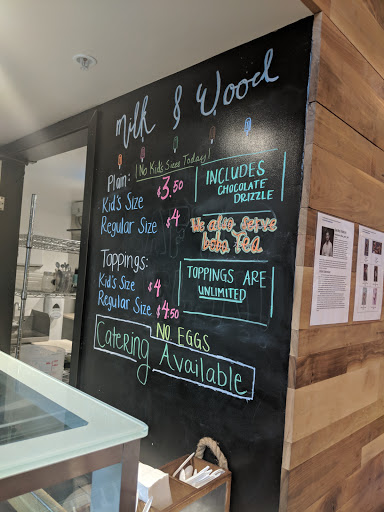 Milk & Wood
! No Kid's Sizes Today!
Plain:
Kid's Size $3.50
Regular Size $4
INCLUDES
CHOCOLATE
DRIZZLE
We also serve
boba tea
Toppings:
Kid's Size $4
Regular Size $4.50
TOPPINGS ARE
UNLIMITED
NO EGGS
Catering Available